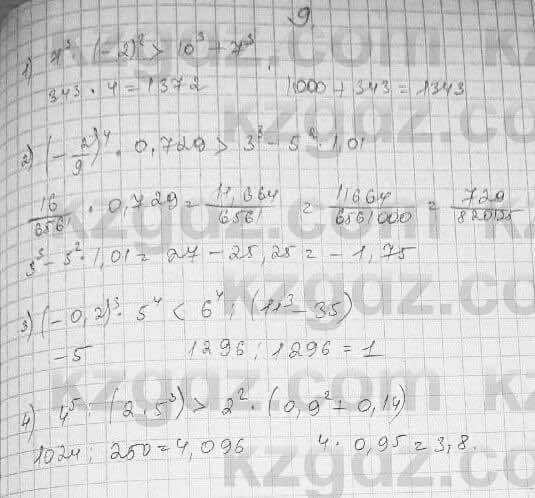 9.
1) 7³ · (-2)² > 10³ + 7³
343 · 4 = 1372    1000 + 343 = 1343
2) (-2/9)⁴ · 0,729 > 3³ - 5² · 1,01
16/6561 · 0,729 = 11,664/6561 = 11664/6561000 = 729/820125
3³ - 5² · 1,01 = 27 - 25,25 = -1,75
3) (-0,2)³ · 5⁴ < 6⁴ : (11³ - 35)
-5    1296 : 1296 = 1
4) 4⁵ : (2 · 5³) > 2² · (0,9² + 0,14)
1024 : 250 = 4,096    4 · 0,95 = 3,8.
kzgdz.com